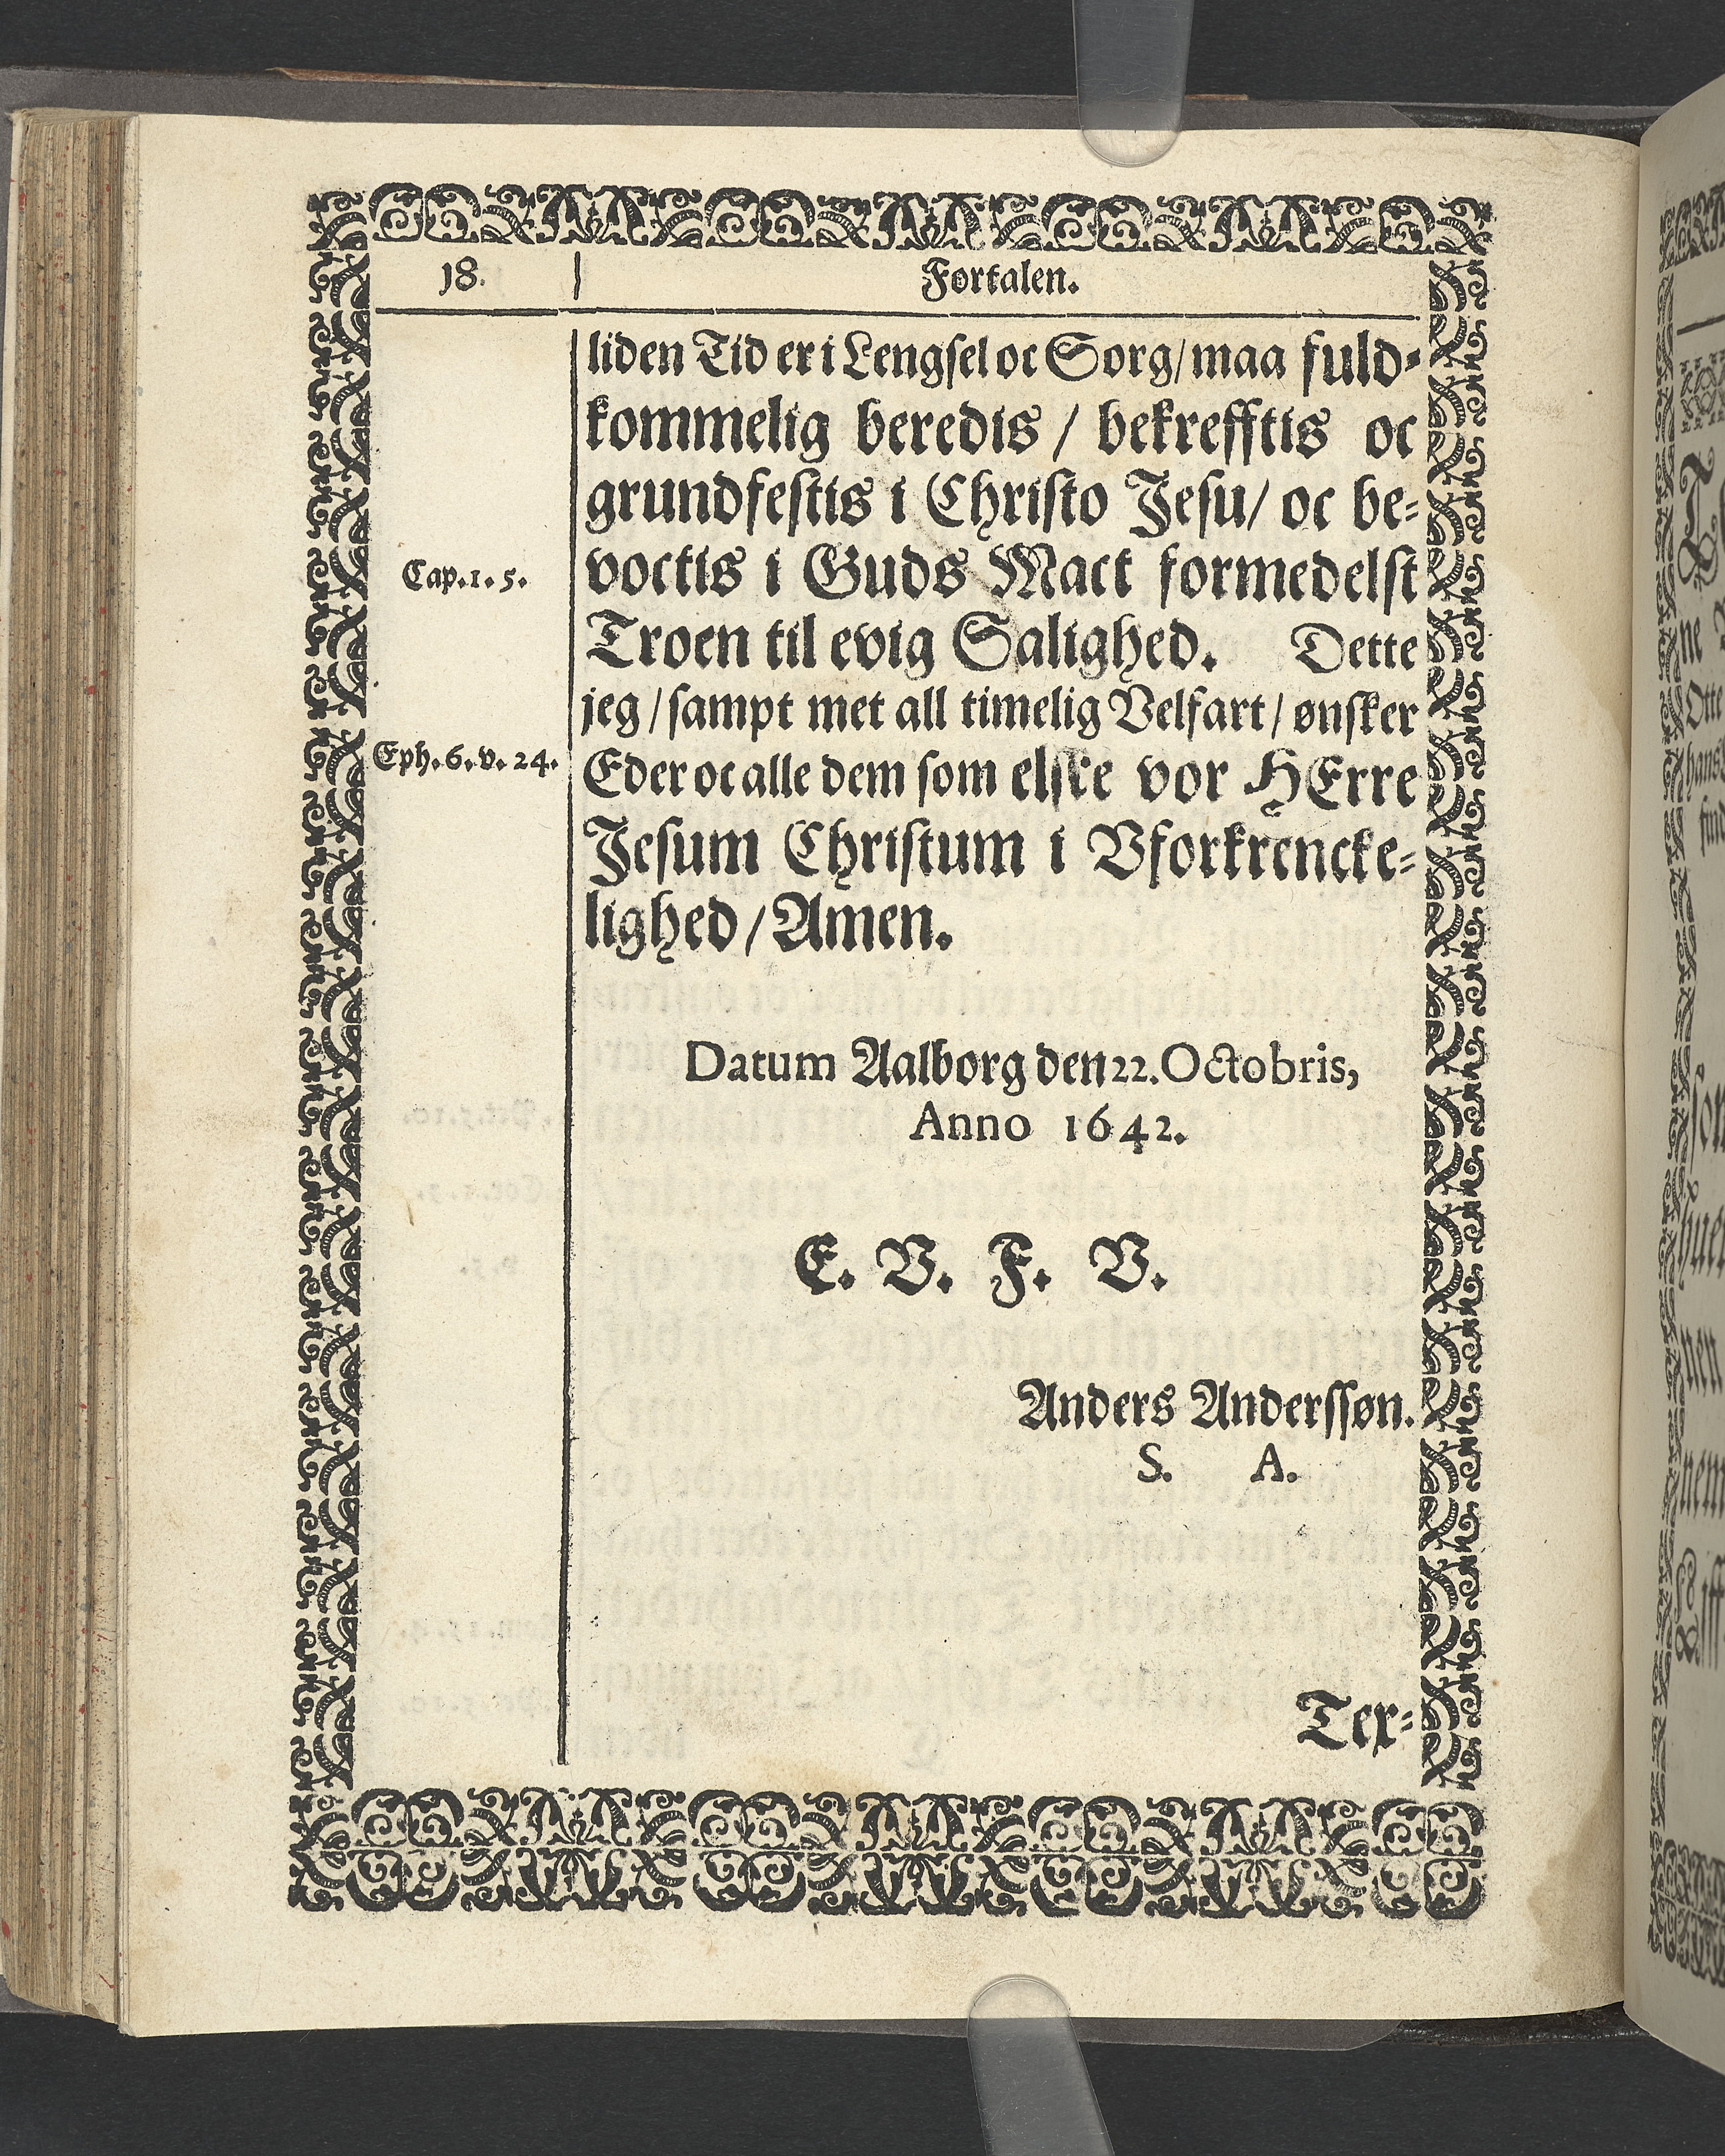 18.
Fortalen.
liden Tid er i Lengsel oc Sorg/ maa fuld-
kommelig beredis / bekrefftis oc
grundfestis i Christo Jesu/ oc be-
Cap. 1. 5.
voctis i Guds Mact formedelst
Troen til evig Salighed. Dette
jeg / sampt met all timelig Velfart / ønsker
Eph. 6. v. 24.
Eder oc alle dem som elske vor HErre
Jesum Christum i Vforkrencke-
lighed / Amen.
Datum Aalborg den 22. Octobris,
Anno 1642.
E. V. F. V.
Anders Anderssøn.
S. A.
Tex-